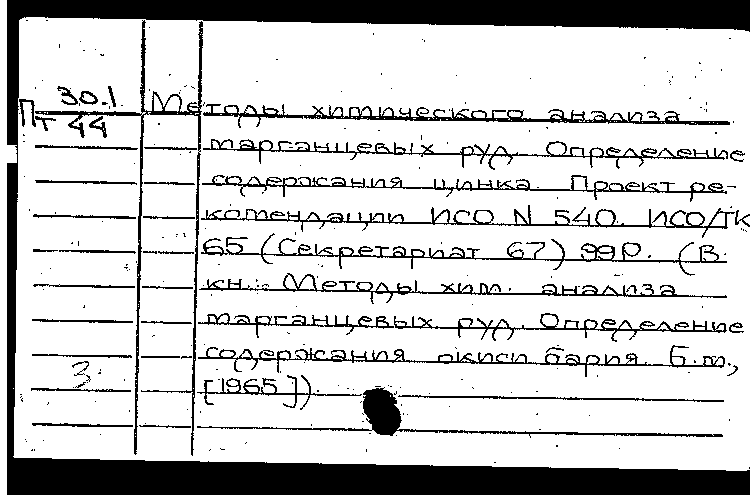 30.1
Пт 44
Методы химического анализа
марганцевых руд. Определение
содержания цинка. Проект ре-
комендации ИСО N 540. ИСО/ТК
65 (Секретариат 67) 99Р. (В
кн.: Методы хим. анализа
марганцевых руд. Определение
содержания окиси бария. Б.м.,
[1965])
3